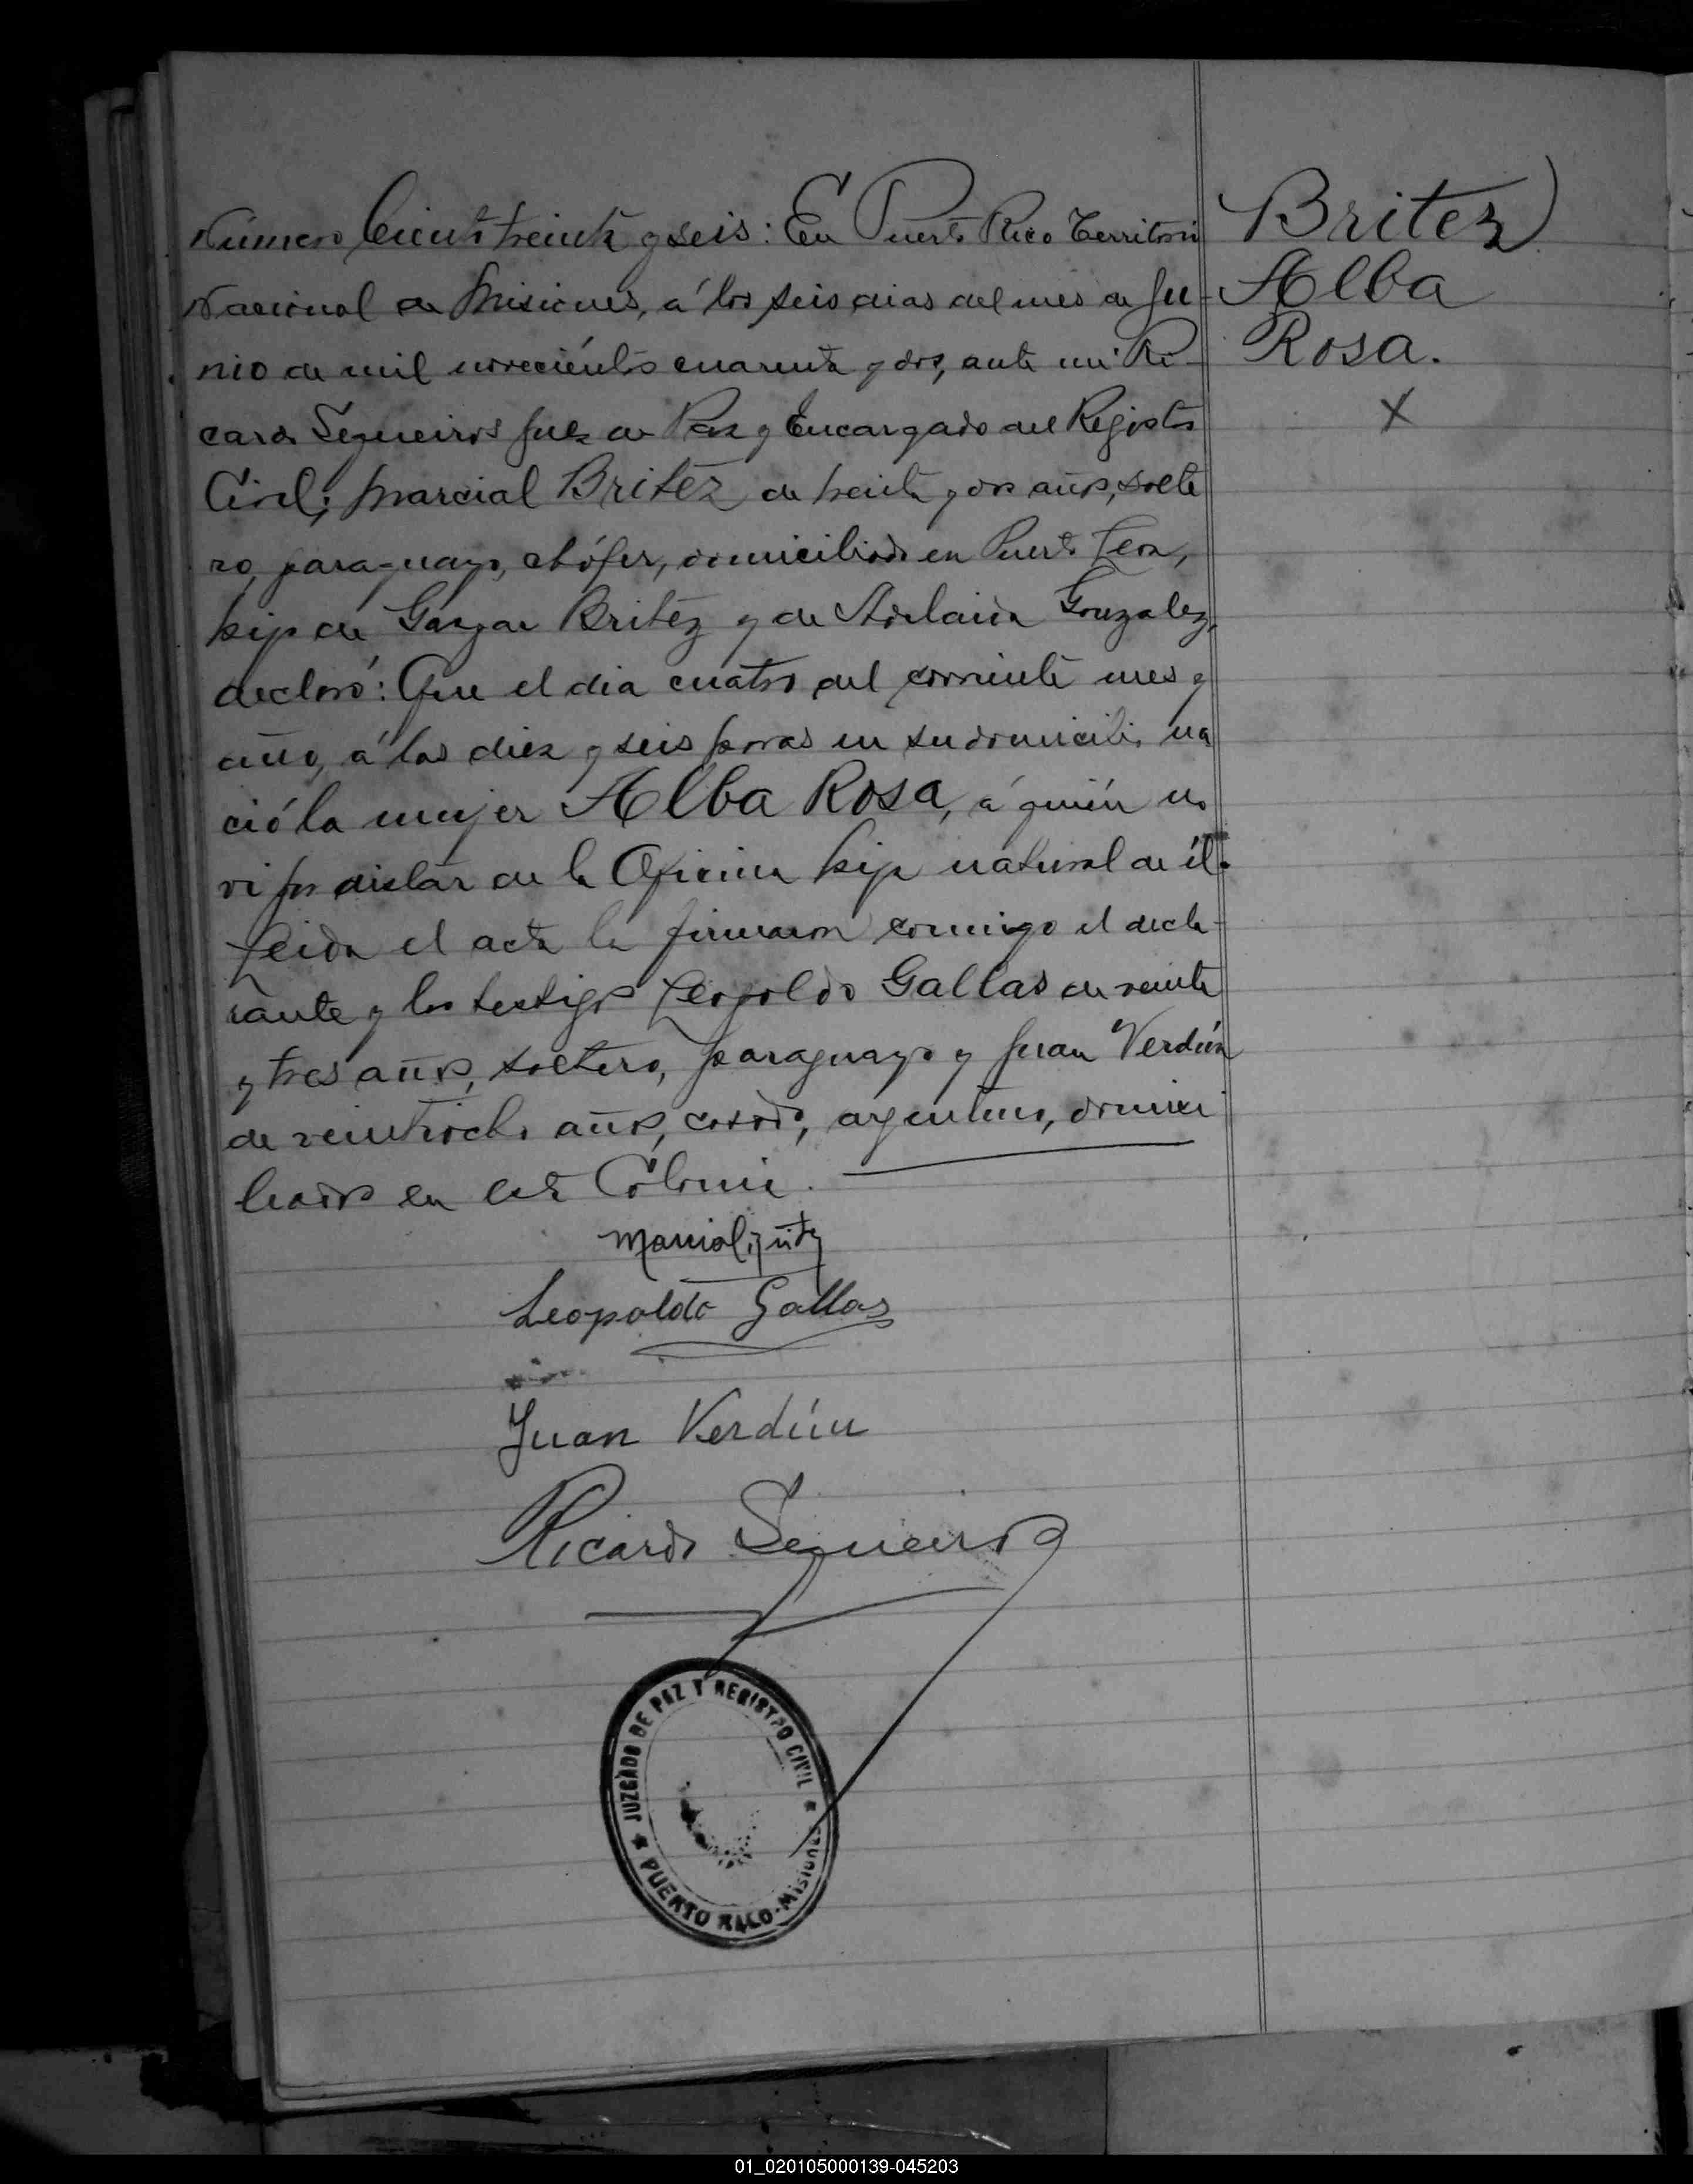 Número Ciento treinta y seis: En Puerto Rico Territorio
Nacional de Misiones, á los seis dias del mes de Ju-
nio de mil novecientos cuarenta y dos, ante mi Ri-
cardo Sequeiros Juez de Paz y Encargado del Registro
Civil; Marcial Britez de treinta y dos años, solte
ro, paraguayo, chófer, domiciliado en Puerto
hijo de Gaspar Britez y de Adelaida Gonzalez,
declaró: Que el dia cuatro del corriente mes y
año, á las diez y seis horas en su domicilio na
ció la mujer Alba Rosa, á quién no
vi por distar de la Oficina hija natural de él.
Leida el acta la firmaron conmigo el decla-
rante y los testigos Leopoldo Gallas de veinte
y tres años, soltero, paraguayo y Juan Verdún
de veintiocho años, casado, argentino, domici
liados en esta Colonia.
Britez
Alba
Rosa.
X
Marcial Britez
Leopoldo Gallas
Juan Verdún
Ricardo Sequeiros
JUZGADO DE PAZ Y REGISTRO CIVIL
PUERTO RICO-Misiones
01_020105000139-045203